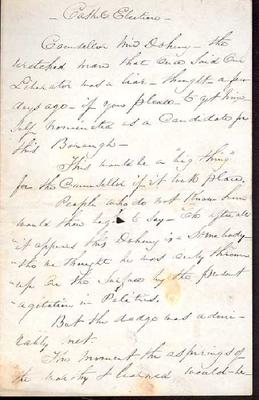 - Cashel Election -
Counsellor Mc'd Doheny - the
wretched man that once said Our
Liberator was a liar - thought a few
days ago - if you please - to get him
self nominated as a Candidate for
this Borough -
This would be a "big thing"
for the Counsellor if it took place.
People who do not know him
would then begin to say - Oh after all
it appears this Doheny is a Somebody
- tho we thought he was only thrown
up on the surface by the present
agitation in Politics.
But the dodge was admi-
rably met.
The moment the aspirings of
the worthy & learned would-be